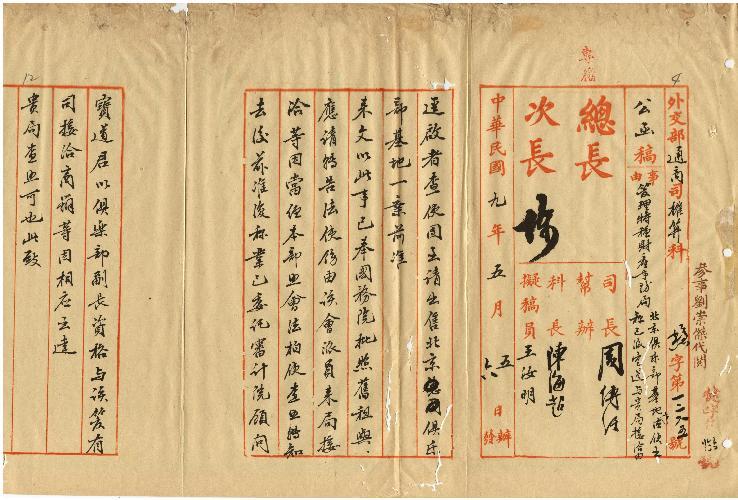 4
外交部通商司榷算科
字第一二六五號
參事劉崇傑代閱
公函稿
事由
管理特種財產事務局
北京俱樂部基地法使
已派寶道與貴局接洽由
專檔
總長
次長
司長 周傳經
幫辦
科長 陳海超
擬稿員 王汝明
中華民國九年五月五日辦
六
發
逕啟者查使團主請出售北京俱樂
部基地一案前准
來文以此事已奉國務院批照舊租與
應請轉告法使傳由該會派員來局接
洽等因當經本部照會法柏使查照轉知
去後茲准復稱業已委託審計院顧問
12
寶道君以俱樂部副長資格與該管有
司接洽商辦等因相應函達
貴局查照可也此致